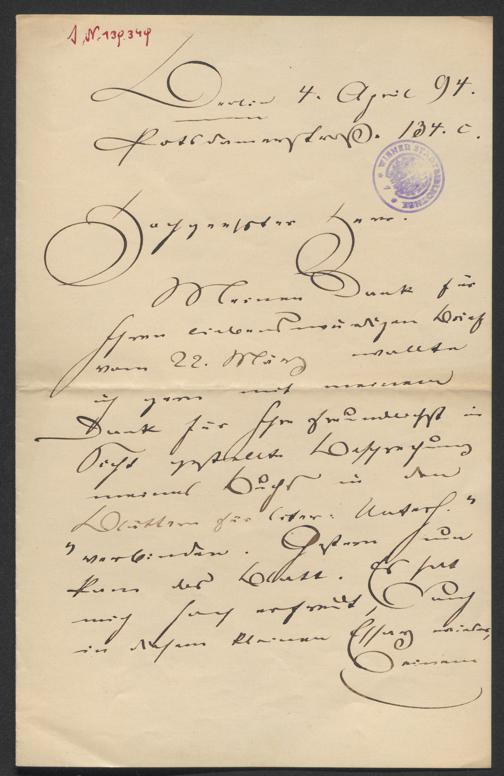 J.N. 139.349
Berlin 4. April 94.
Potsdamerstraß. 134. c.
WIENER STADTBIBLIOTHEK
Hochgeehrter Herr.
Meinen Dank für
Ihren liebenswürdigen Brief
vom 22. März wollte
ich gern mit meinem
Dank für Ihre freundlichst in
Sicht gestellte Besprechung
meines Buchs in den
Blättern für liter: Unterh."
"verbinden. Gestern nun
kam das Blatt. Es hat
mich hoch erfreut, Auch
in diesem kleinen Essay wieder,
Seinem